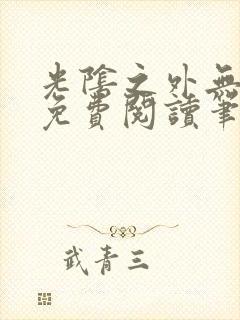 光陰之外無
免費閱讀筆
武青三